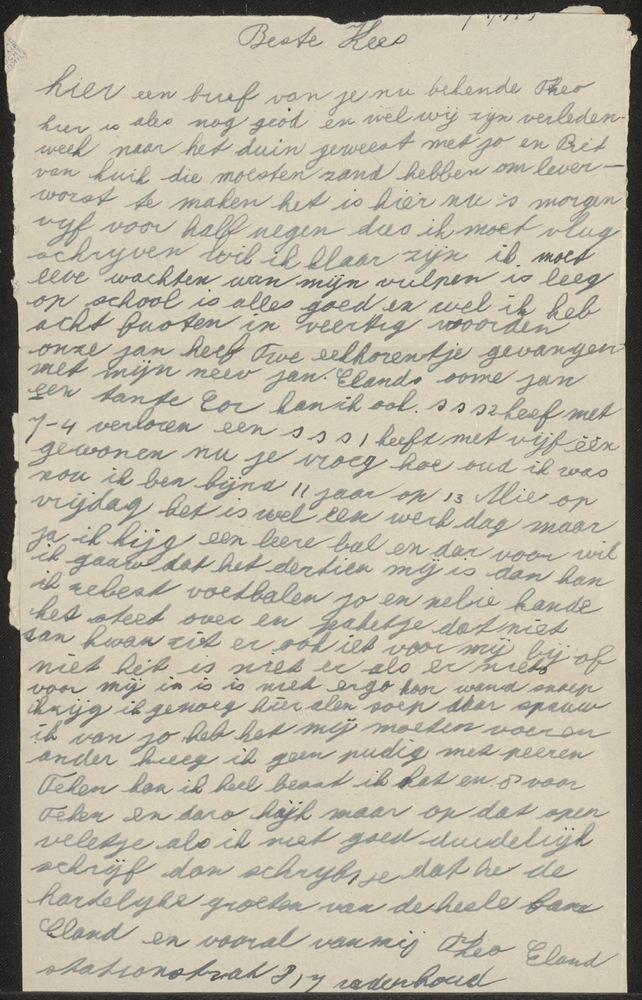 Beste Kees
hier een brief van je nu bekende Theo
hier is ales nog goed en wel wij zyn verleden
week naar het duin geweest met jo en Piet
van huik die moesten zand hebben om lever-
worst te maken het is hier nu 's morgen
vyf voor half negen dus ik moet vlug
schryven wil ik klaar zijn ik moet
eeve wachten want mijn vulpen is leeg
op school is alles goed en wel ik heb
acht fouten in veertig woorden
onze jan heeft Twe eekhorentje gevangen
met mijn neev jan. Elands oome jan
een tante Cor kan ik ook. S S S2 heef met
7-4 verloren een S S S 1 heeft met vijf één
gewonen nu je vroeg hoe oud ik was
nou ik ben bijna 11 jaar op 13 Mei op
vrijdag het is wel een werk dag maar
ja ik krijg een leere bal en dar voor wil
ik gaaw dat het dertien mij is dan kan
ik rebest voetbalen jo en nelie
het steet over en paketje dat niet
kwam zit er ook iet voor mij bij of
niet het is niet er als er niets
voor mij in is is niet ergo hoor wand snoep
krijg ik genoeg hier alen soep daar spauw
ik van jo heb het mij moeten voeren
ander kreeg ik geen pudig met peeren
Teken kan ik heel beast ik hat en 8 voor
Teken en daro kijk maar op dat apen
veletje als ik niet goed duidelijk
schrijf dan schrijf je dat he de
hardelyke groeten van de heele fam
Eland en vooral van mij Theo Eland
stationstraat